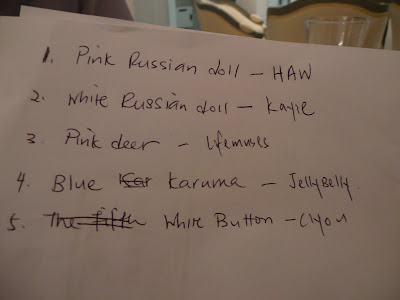 1. Pink Russian doll - HAW
2. White Russian doll - Kayie
3. Pink deer - lifemuses
4. Blue Kar Karuma - JellyBelly
5. The fifth White Button - Clyou